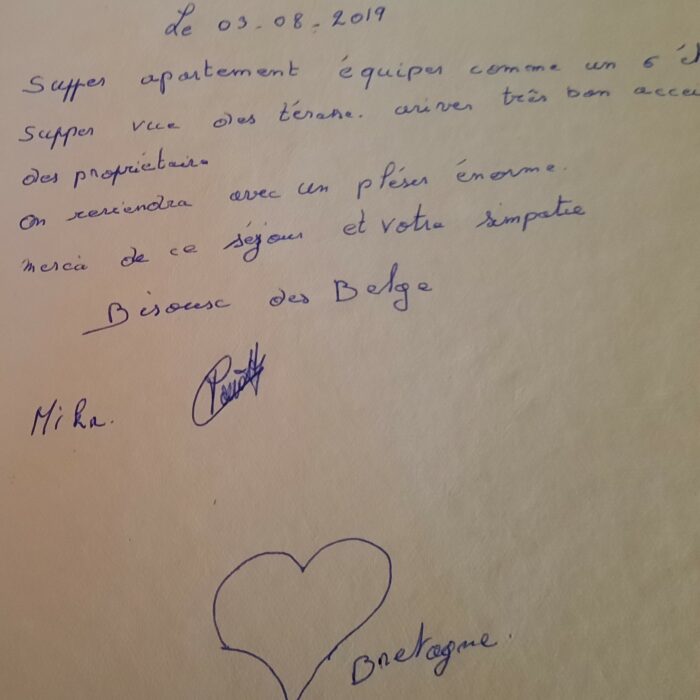 Le 03-08-2019
Supper apartement équiper comme un 6 é
Supper vue des térasse. ariver très bon accue
des propriétaire
On reviendra avec un pléser énorme.
merci de ce séjour et votre simpatie
Bisousc des Belge
Mika.
Bretagne.